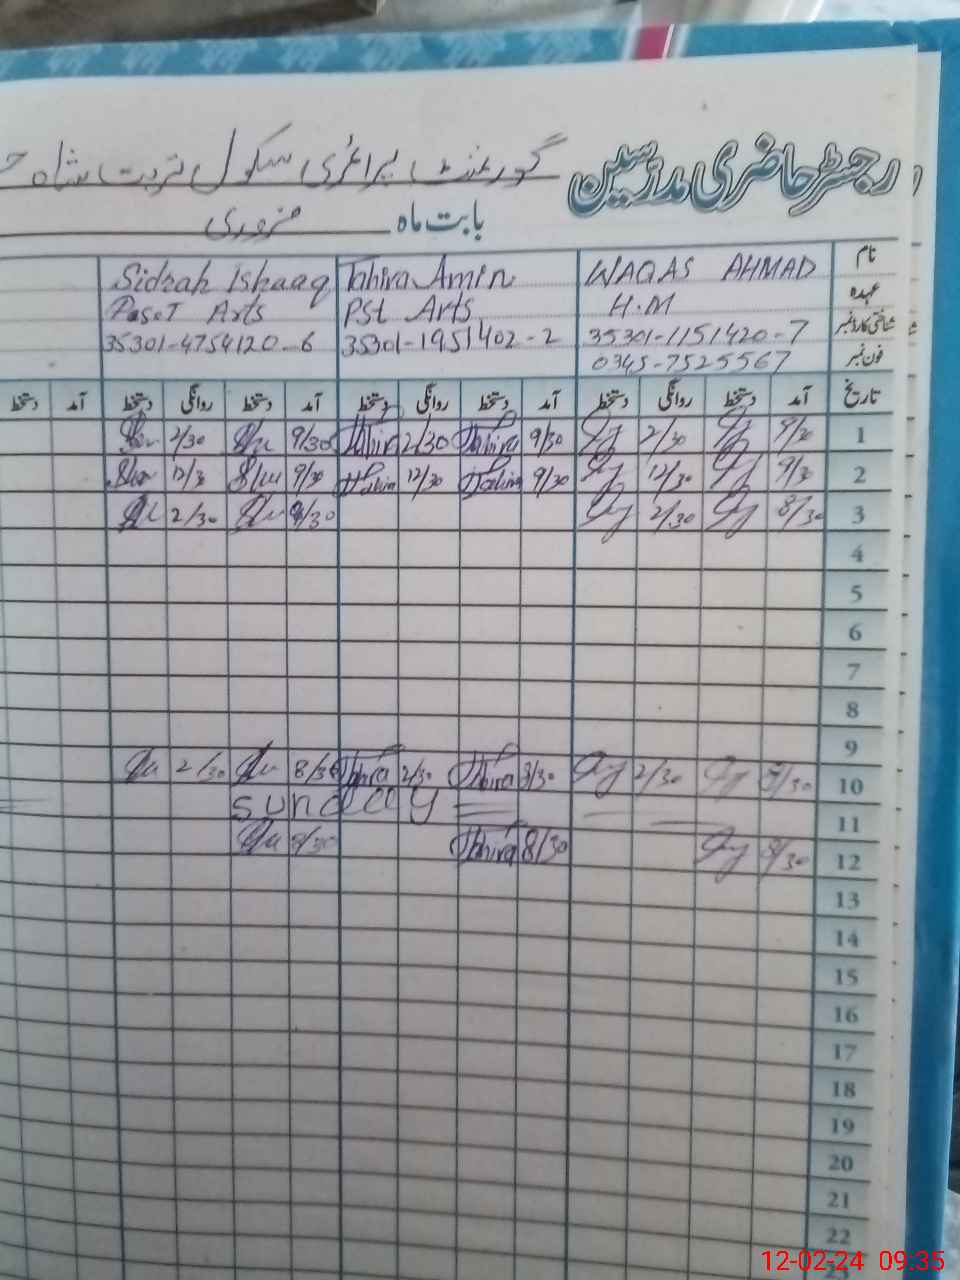 رجسٹر حاضری مدرسین گورنمنٹ پرائمری سکول تربت شاہ
بابت ماہ فروری
نام WAQAS AHMAD Tahira Amin Sidrah Ishaaq
عہدہ H.M PSt Arts Arts
شناختی کارڈ نمبر 35301-1151420-7 35301-1951402-2 35301-4754120-6
فون نمبر 0345-7525567
تاریخ آمد دستخط روانگی دستخط آمد دستخط روانگی دستخط آمد دستخط روانگی دستخط آمد دستخط
1 9/30 2/30 9/30 Tahira 2/30 Tahira 9/30 2/30
2 9/30 12/30 9/30 Tahira 12/30 Tahira 9/30 12/30
3 8/30 2/30 2/30
4
5
6
7
8
9
10 2/30 Tahira 2/30 Tahira 8/30 2/30
11 sunday
12 8/30 8/30 Tahira
13
14
15
16
17
18
19
20
21
22
12-02-24 09:35